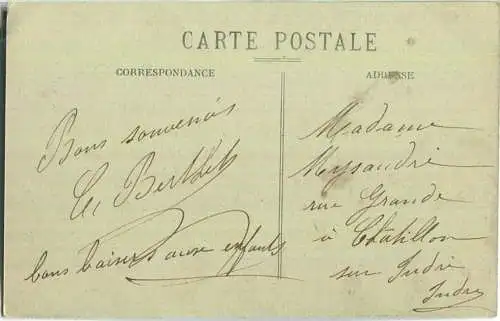 CARTE POSTALE
CORRESPONDANCE
ADRESSE
Bons souvenirs
Bons baisers aux enfants
Madame
rue Grande
à Châtillon
sur Indre
Indre